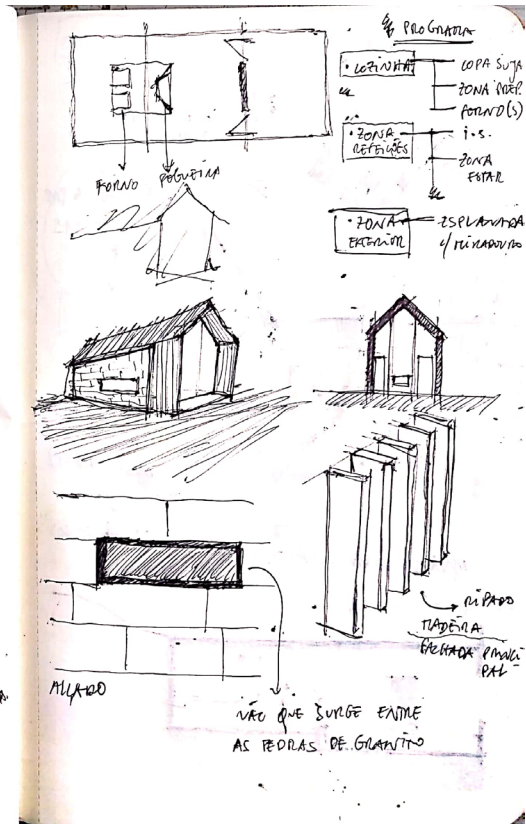 PROGRAMA
• COZINHA
COPA SUJA
ZONA PREP.
FORNO(S)
• ZONA
REFEIÇÕES
I.S.
ZONA
ESTAR
• ZONA
EXTERIOR
ESPLANADA
C/ MIRADOURO
FORNO
FOGUEIRA
RIPADO
MADEIRA
FACHADA PRINCI
PAL
ALÇADO
VÃO QUE SURGE ENTRE
AS PEDRAS DE GRANITO